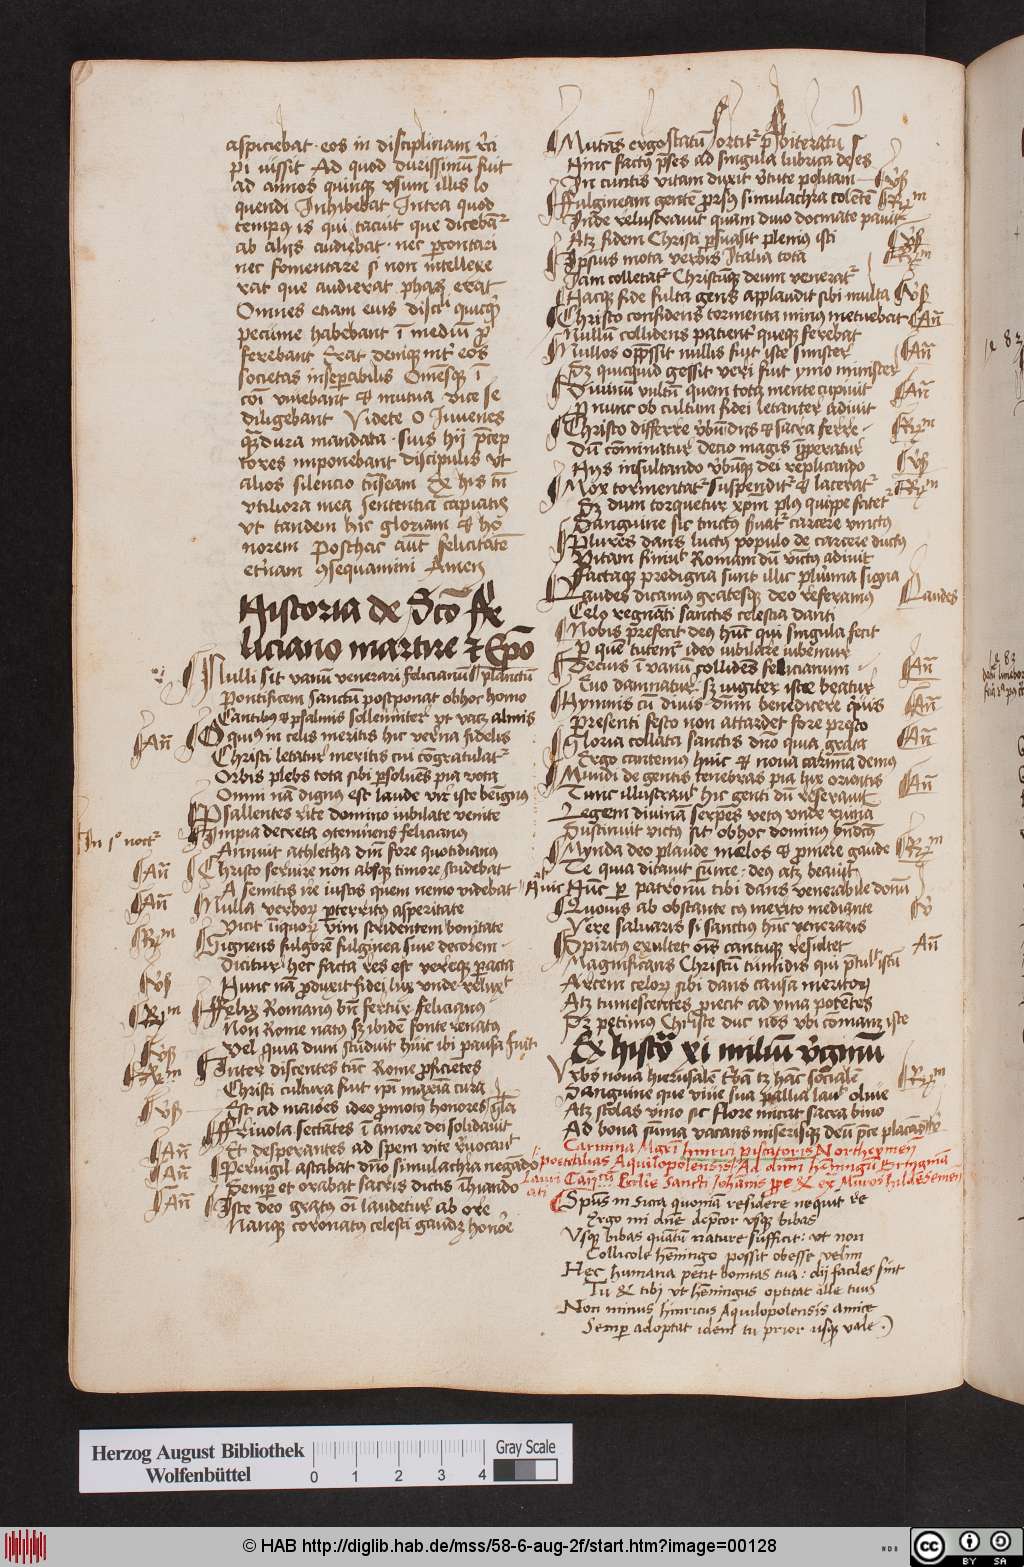 aspiciebat · eos in disciplinam r̄ci
pi iussit Ad quod durissimū fuit
ad annos quinqꝫ vsum illis lo
quendi Inhibebat Intra quod
tempꝰ is qui tacuit que diceba͂t
ab alijs audiebat · nec pcontari
nec fomentare si non intellexe
rat que audierat phas erat
Omnes etiam eius disci quicqd
pecunie habebant ī mediū
ferebant Erat deniqꝫ int eos
societas insepabilis Omnesqꝫ ī
coī viuebant et mutua vice se
diligebant Videte O Iuuenes
dura mandata · suis hij pcep
tores imponebant discipulis vt
alios silencio Ex his
vtiliora mea sententia capiatis
vt tandem hic gloriam et ho
norem Posthac aūt felicitatē
etnam ꝯsequamini Amen
Historia de Sc̄o Fe
liciano martire et Ep̄o
Nulli sit vanū venerari felicianū planctū
Pontificem sanctū postponat obhoc homo
Cantibꝰ et psalmis sollemniter vt vacꝫ almis
O quiꝰ in celis meritis hic verna fidelis
Añ
Christi letatur meritis cui cōgratulat
Orbis plebs tota sibi psoluēs pia vota
Omni nā dignus est laude vir iste benignus
Psallentes rite domino iubilate venite
In pͦ noct
Impia decreta ꝯtemnens felicianus
Annuit athletha dn̄m fore quotidianus
Añ
Christo seruire non absqꝫ timore studebat
A semitis ire iustas quem nemo videbat
Añ
Nulla verboꝝ pterritus asperitate
Vicit iniquoꝝ vim stridentem bonitate
Rm
Gignens fulgorē fulginea siue decorem
Dicitur hec facta res est vereqꝫ pacta
Vs
Hunc nā produxit fidei lux vnde reluxt
Felix Romanus bn̄ fertur felicianus
Rm
Non Rome natus sꝫ ibidē fonte renatus
Vs
Vel quia dum studuit huic ibi pausa fuit
Rm
Inter discentes tūc Rome pficientes
Christi cultura fuit ipī maxima cura
Vs
Est ad maiores ideo pmota honores
Friuola sectantes ī amore dei solidauit
Añ
Et desperantes ad spem vite reuocauit
Añ
Peruigil astabat dno simulachra negando
Semp et orabat sacris dictis inhiando
Añ
Iste deo gratus oī laudetur ab ore
Namqꝫ coronatus celesti gaudꝫ honore
Mutās ergo statū
Hinc factus pses ad singula lubrica deses
In cuntis vitam duxit vtute politam
Vs
Fulgineam gentē prorsꝰ simulachra colentē
Rm
Inde relustrauit quam diuo docmate pauit
Atqꝫ fidem Christi psuasit plenius isti
Vs
Ipsius mota verbis Italia tota
Rm
Iam colletat Christumqꝫ deum venerat
Hacqꝫ fide fulta gens applaudit sibi multa
Vs
Christo confidens tormenta minus metuebat
Añ
Nullū collidens pacient queqꝫ ferebat
Nullos oppssit nullis fuit iste sinister
Añ
Sꝫ quicquid gessit veri fuit ymo minister
Diuinū vultū quem tota mente cupiuit
Añ
P nunc ob cultum fidei letanter adiuit
Christo differre vbū dn̄s et sacra ferre
Rm
Dū cōminatur decio magis īpperatur
Hijs insultando vbūqꝫ dei replicando
Vs
Mox tormentat suspendit et lacerat
Rm
Sꝫ dum torquetur xpm plus quippe fatet
Sanguine sic tinctus seruat carcere vinctus
Plures dans luctus populo de carcere ductus
Vitam finiuit Romam dū vinctus adiuit
Factaqꝫ prodigna sunt illic plurima signa
Laudes dicamus gratesqꝫ deo referamus
Laudes
Celo regnāti sanctis celestia danti
Nobis prefecit deus hūc qui singula fecit
P que tutemr ideo iubilare iubemur
Decius ī vanū collidēs felicianum
Añ
Suo damnatur sꝫ iugiter iste beatur
Hymnis cū diuis dn̄m benedicere quis
Añ
Presenti festo non attardet fore presto
Gloria collata sanctis dn̄o quia grata
Añ
Ergo cantemus huic et noua carmina demus
Mundi de gentis tenebras pia lux orientis
Añ
Tunc illustrauit hic genti dū reserauit
Legem diuinā serpēs vetus vnde ruina
Sustinuit victus sit obhoc dominus bn̄dc̄us
Munda deo plaude melos et pmere gaude
Rm
Te quia ditauit sūme deus atqꝫ beauit
Hunc
Hūc p patronū tibi dans venerabile donū
Quouis ab obstante eius merito mediante
V
Vere saluaris si sanctius huc veneraris
Spiritus exultet oīs cantuqꝫ resultet
Añ
Magnificans Christū tumidis qui ptulit istū
Artem celoꝝ sibi dans causa meritoꝝ
Atqꝫ tumescentes piecit ad yma potētes
Sꝫ petimus Christe duc nos vbi cōmanꝫ iste
Ex histo xi miliū virginū
Vrbs noua hierusalē
Rm
Sanguine que viue sua pallia lauit oliue
Atqꝫ stolas vino sic flore micat sacra bino
Ad bona sūma vacans miserisqꝫ deū pce placās
Carmina Magri hinrici piscatoris Northeymeñ
poete alias Aquilopolensis Ad dnm hēningū
Cañ Ecclie Sancti Iohānis ppe et ex Muros hildesemeñ
Spūs in sicca quoniam residere nequit re
Ergo mi dn̄e dep̄cor vsqꝫ bibas
Vsqꝫ bibas quātū nature sufficit : vt non
Collicole hēningo possit obesse velim
Hec humana petit bonitas tua : dij faciles sint
Tu et tibi vt hēningus optitat ille tuus
Non minus hinricus Aquilopolensis amice
Semp adoptat idem tu prior usqꝫ vale
Herzog August Bibliothek
Wolfenbüttel
0 1 2 3 4
Gray Scale
© HAB http://diglib.hab.de/mss/58-6-aug-2f/start.htm?image=00128
cc BY SA